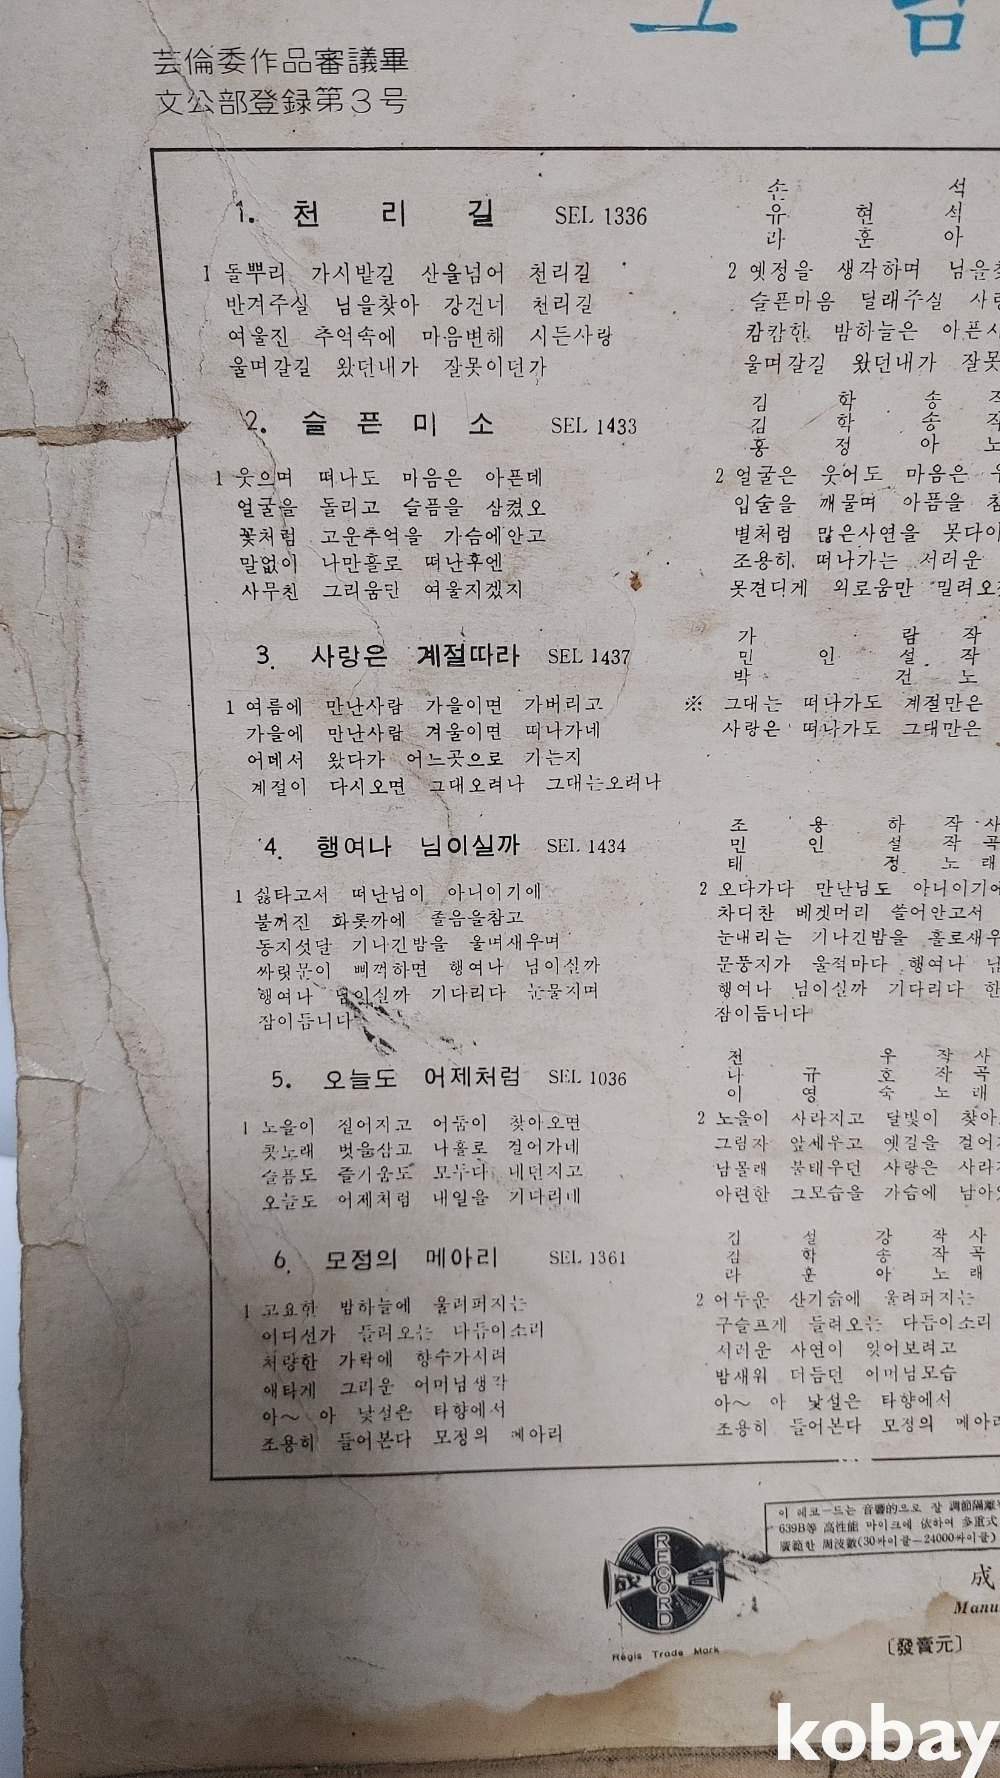 芸倫委作品審議畢
文公部登録第3号
1. 천리길 SEL 1336
손 석
유 현 석
라 훈 아
1 돌뿌리 가시밭길 산을넘어 천리길
반겨주실 님을찾아 강건너 천리길
여울진 추억속에 마음변해 시든사랑
울며갈길 왔던내가 잘못이던가
2 옛정을 생각하며 님을찾
슬픈마음 달래주실 사랑
캄캄한 밤하늘은 아픈
울며갈길 왔던내가 잘못
2. 슬픈미소 SEL 1433
김 학 송 작
김 학 송 작
홍 정 아 노
1 웃으며 떠나도 마음은 아픈데
얼굴을 돌리고 슬픔을 삼켰오
꽃처럼 고운추억을 가슴에안고
말없이 나만홀로 떠난후엔
사무친 그리움만 여울지겠지
2 얼굴은 웃어도 마음은
입술을 깨물며 아픔을 참
별처럼 많은사연을 못다이
조용히 떠나가는 서러운
못견디게 외로움만 밀려오
3. 사랑은 계절따라 SEL 1437
가 람 작
민 인 설 작
박 건 노
1 여름에 만난사람 가을이면 가버리고
가을에 만난사람 겨울이면 떠나가네
어데서 왔다가 어느곳으로 가는지
계절이 다시오면 그대오려나 그대는오려나
※ 그대는 떠나가도 계절만은
사랑은 떠나가도 그대만은
4. 행여나 님이실까 SEL 1434
조 용 하 작 사
민 인 설 작 곡
태 정 노 래
1 싫타고서 떠난님이 아니이기에
불꺼진 화롯까에 졸음을참고
동지섯달 기나긴밤을 울며새우며
싸릿문이 삐꺽하면 행여나 님이실까
행여나 님이실까 기다리다 눈물지며
잠이듭니다
2 오다가다 만난님도 아니이기에
차디찬 베겟머리 쓸어안고서
눈내리는 기나긴밤을 홀로새우
문풍지가 울적마다 행여나 님
행여나 님이실까 기다리다 한
잠이듭니다
5. 오늘도 어제처럼 SEL 1036
전 우 작 사
나 규 호 작 곡
이 영 숙 노 래
1 노을이 짙어지고 어둠이 찾아오면
콧노래 벗을삼고 나홀로 걸어가네
슬픔도 즐거움도 모두다 내던지고
오늘도 어제처럼 내일을 기다리네
2 노을이 사라지고 달빛이 찾아
그림자 앞세우고 옛길을 걸어
남몰래 불태우던 사랑은 사라
아련한 그모습을 가슴에 남아
6. 모정의 메아리 SEL 1361
김 설 강 작 사
김 학 송 작 곡
라 훈 아 노 래
1 고요한 밤하늘에 울려퍼지는
어디선가 들려오는 다듬이소리
처량한 가락에 향수가시려
애타게 그리운 어머님생각
아～ 아 낯설은 타향에서
조용히 들어본다 모정의 메아리
2 어두운 산기슭에 울려퍼지는
구슬프게 들려오는 다듬이소리
서러운 사연이 잊어보려고
밤새워 더듬던 어머님모습
아～ 아 낯설은 타향에서
조용히 들어본다 모정의 메아리
이 레코ー드는 音響的으로 잘 調節隔離
639B等 高性能 마이크에 依하여 多重式
廣範한 周波數(30싸이클—24000싸이클)
RECORD
成音
Regis Trade Mark
成
Manu
〔發賣元〕
kobay